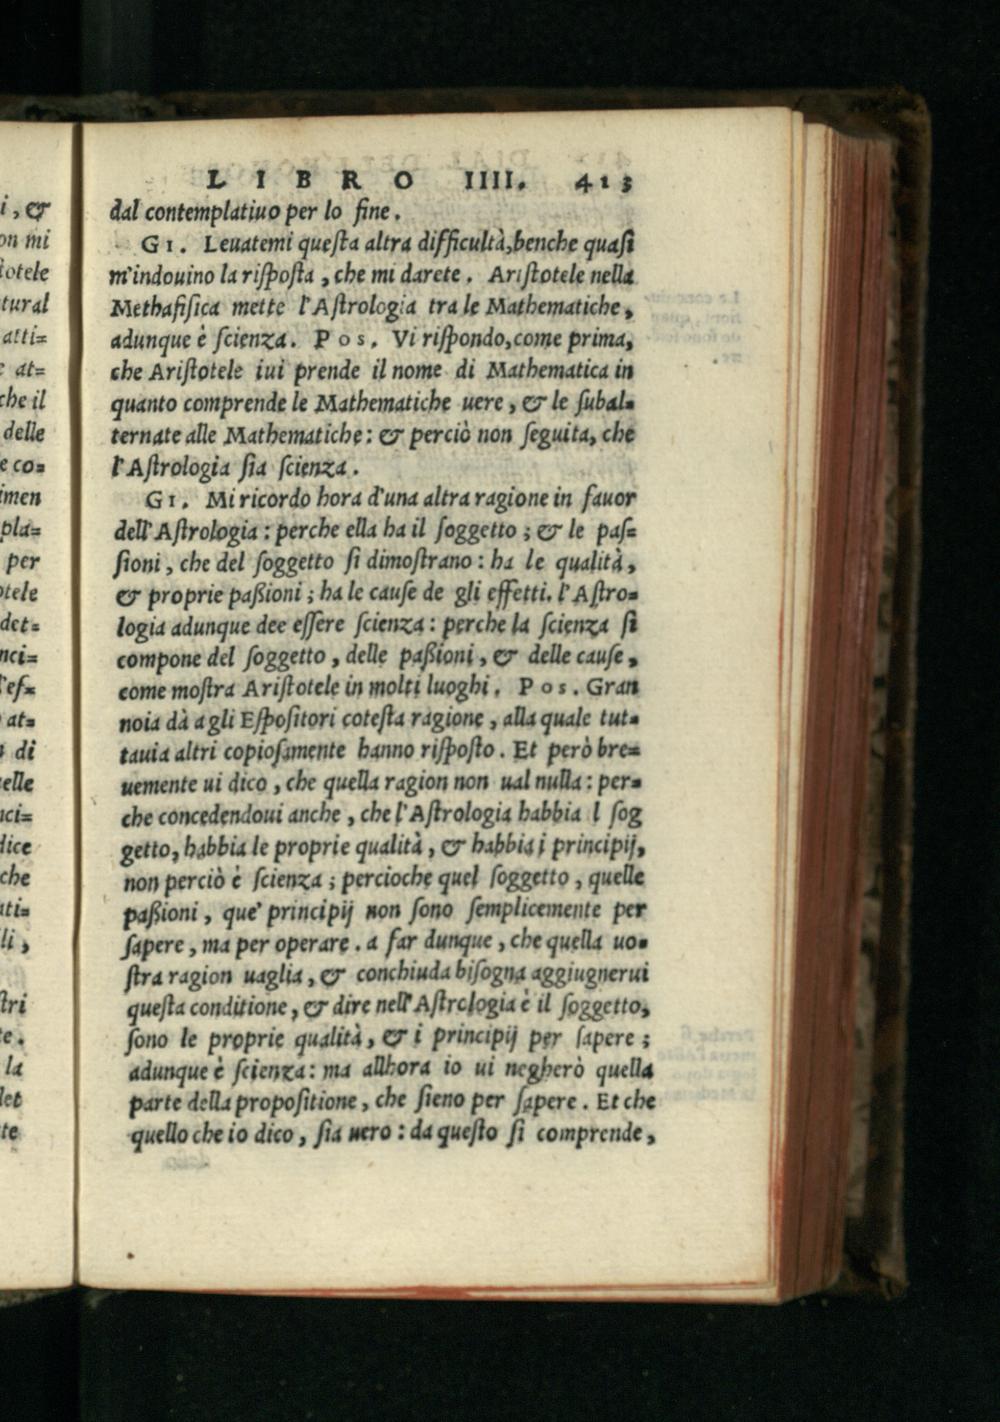 LIBRO IIII. 413
dal contemplatiuo per lo fine.
GI. Leuatemi queſta altra difficultà, benche quaſi
m'indouino la riſpoſta, che mi darete. Ariſtotele nella
Methafiſica mette l'Aſtrologia tra le Mathematiche,
adunque è ſcienza. Pos. Vi riſpondo, come prima,
che Ariſtotele iui prende il nome di Mathematica in
quanto comprende le Mathematiche uere, & le ſubal-
ternate alle Mathematiche: & perciò non ſeguita, che
l'Aſtrologia ſia ſcienza.
GI. Mi ricordo hora d'una altra ragione in fauor
dell'Aſtrologia: perche ella ha il ſoggetto; & le paſ=
ſioni, che del ſoggetto ſi dimoſtrano: ha le qualità,
& proprie paßioni; ha le cauſe de gli effetti. l'Aſtro=
logia adunque dee eſſere ſcienza: perche la ſcienza ſi
compone del ſoggetto, delle paßioni, & delle cauſe,
come moſtra Ariſtotele in molti luoghi. Pos. Gran
noia dà a gli Eſpoſitori coteſta ragione, alla quale tut=
tauia altri copioſamente hanno riſpoſto. Et però bre=
uemente ui dico, che quella ragion non ual nulla: per=
che concedendoui anche, che l'Aſtrologia habbia l ſog
getto, habbia le proprie qualità, & habbia i principij,
non perciò è ſcienza; percioche quel ſoggetto, quelle
paßioni, que' principij non ſono ſemplicemente per
ſapere, ma per operare. a far dunque, che quella uo=
ſtra ragion uaglia, & conchiuda biſogna aggiugnerui
queſta conditione, & dire nell'Aſtrologia è il ſoggetto,
ſono le proprie qualità, & i principij per ſapere;
adunque è ſcienza: ma allhora io ui negherò quella
parte della propoſitione, che ſieno per ſapere. Et che
quello che io dico, ſia uero: da queſto ſi comprende,
i, &
on mi
ſtotele
tural
atti=
e at=
che il
delle
e co=
imen
pla=
per
otele
det=
nci=
l'ef=
at=
di
uelle
nci=
dice
che
ati=
li,
ſtri
te.
la
let
te